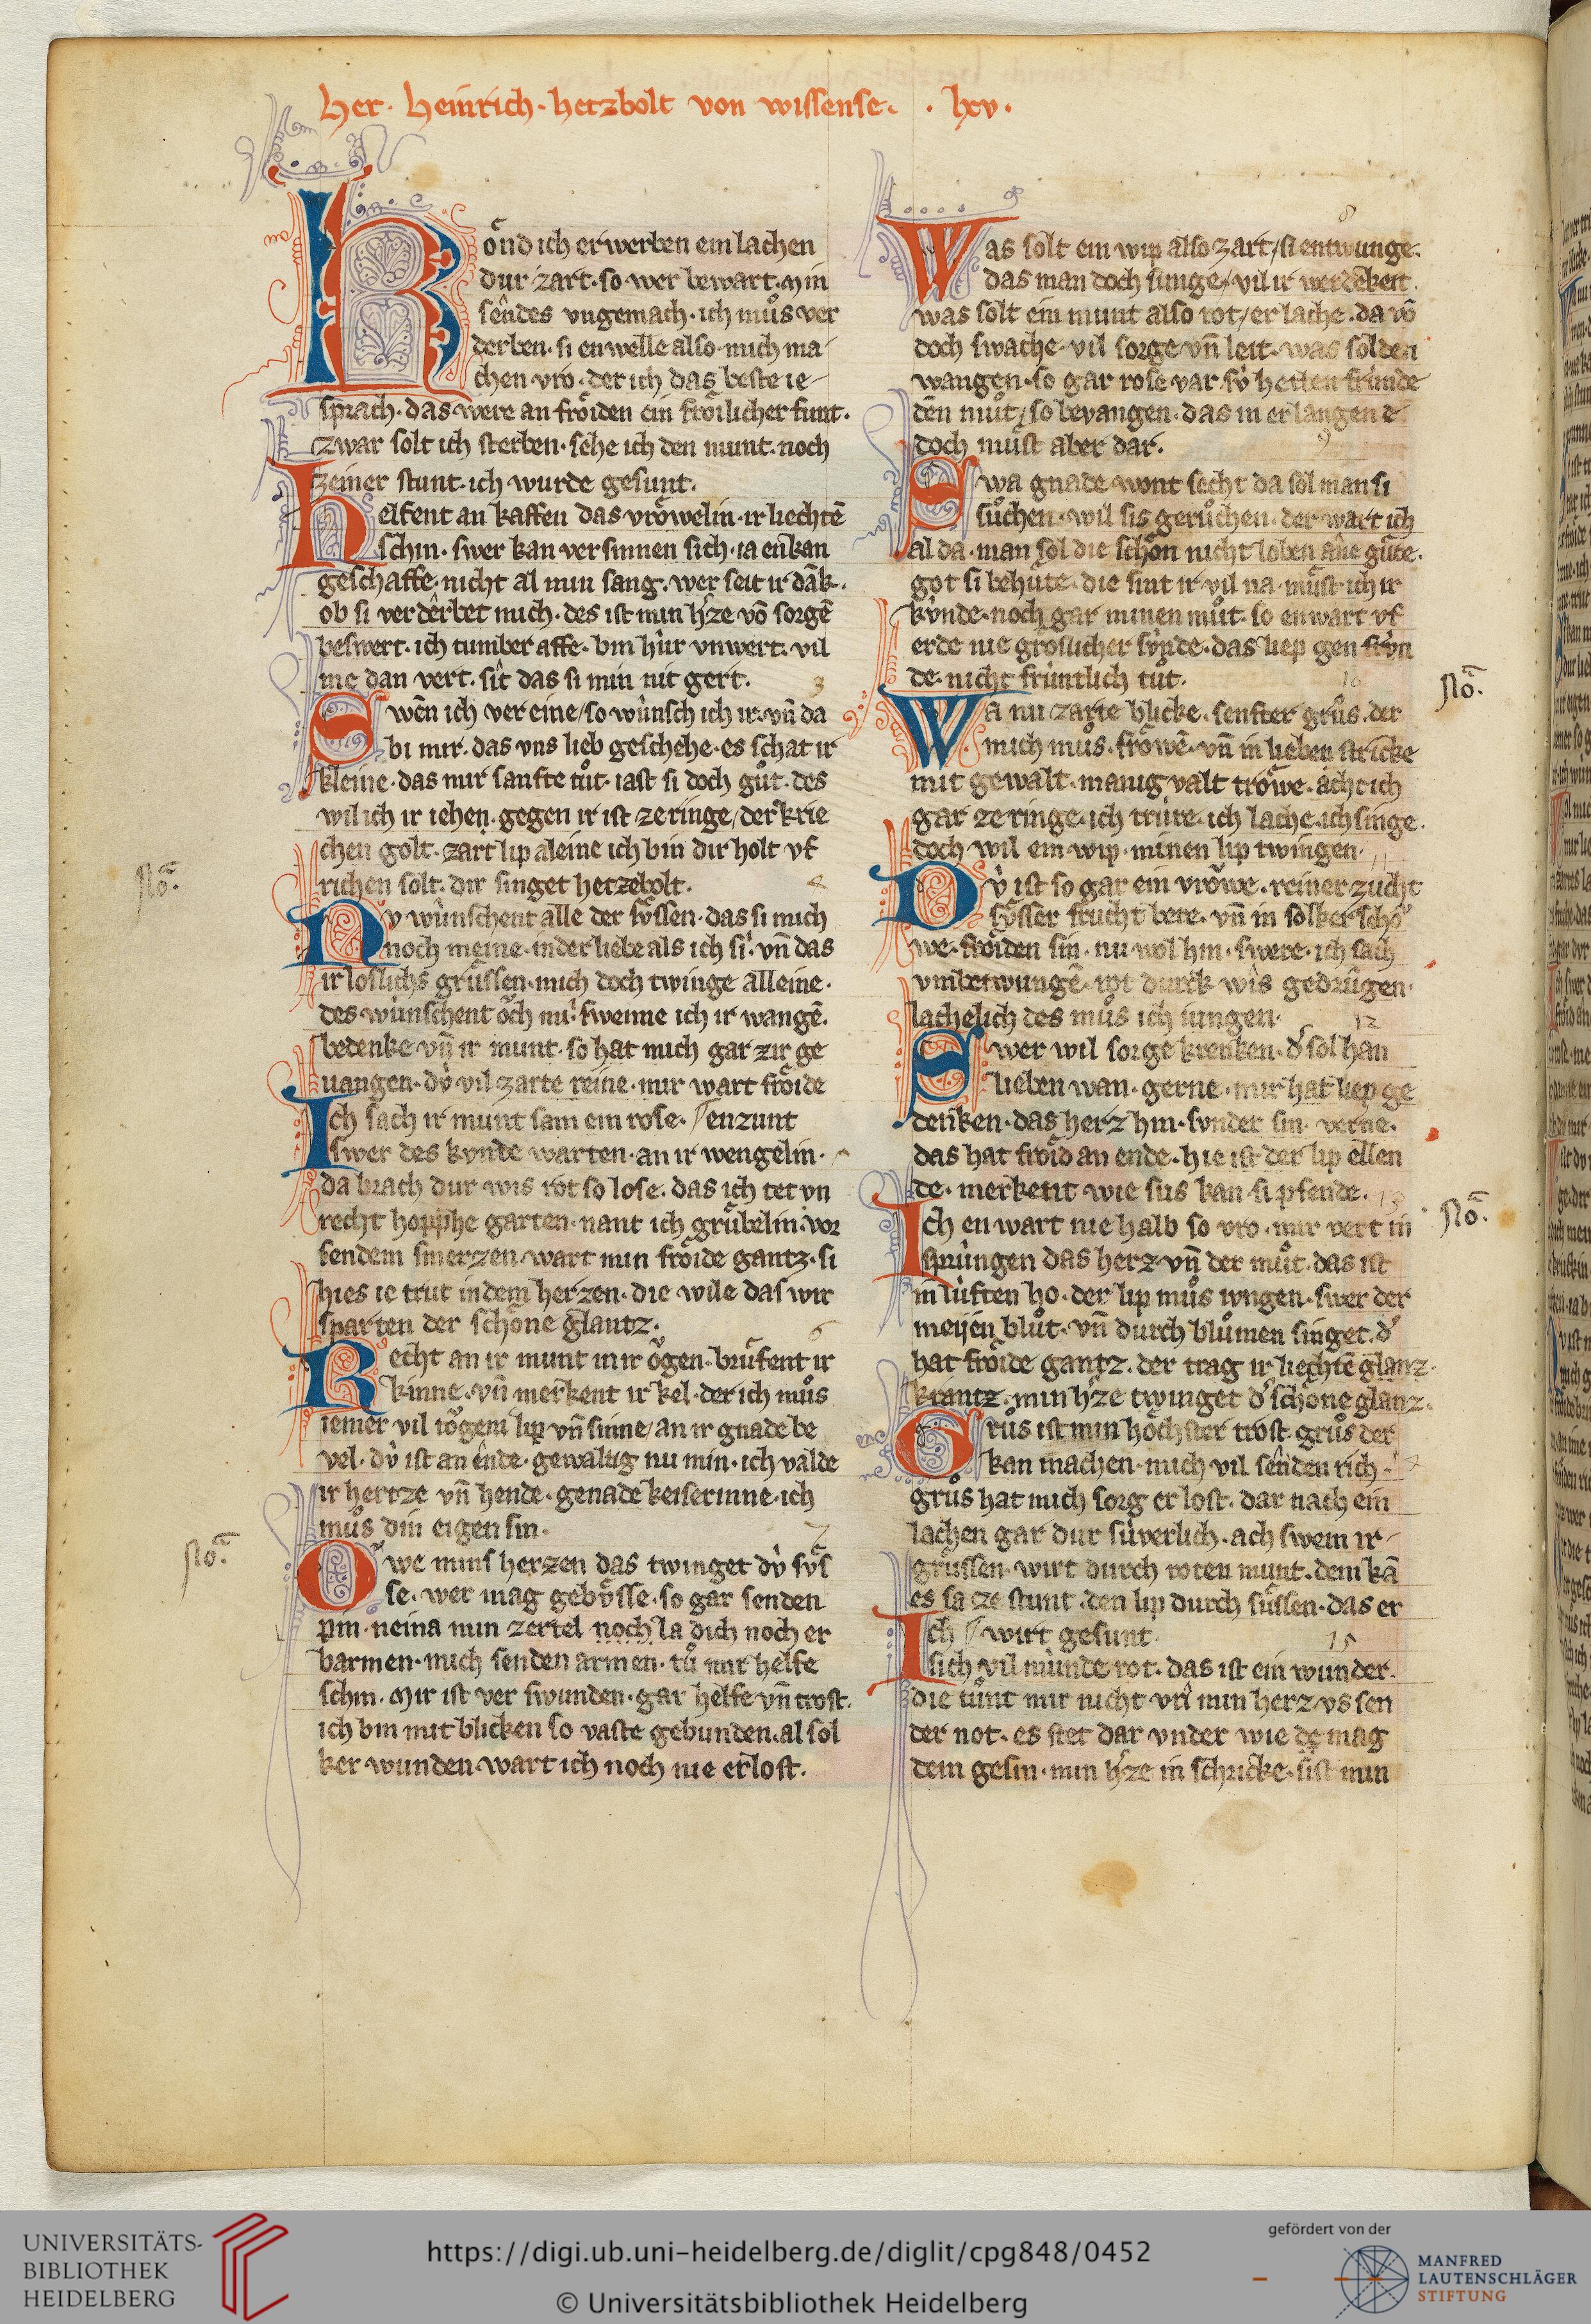 her · heinrich · hetzbolt von wissense. · lxv ·
Kond ich erwerben ein lachen
dur zart · so wer bewart · min
sendes vngemach · ich mus ver
derben · si enwelle also · mich ma
chen vro · der ich das beste ie
sprach · das were an froiden ein froilicher funt ·
zwar solt ich sterben · sehe ich den munt · noch
zeiner stunt · ich wurde gesunt.
helfent an kaffen das vrowelin · ir liechtē
schin · swer kan versinnen sich · ia enkan
geschaffe · nicht al min sang · wer seit ir dāk ·
ob si verderbet mich · des ist min hˀze vō sorgē
beswert · ich tumber affe · bin hur vnwert · vil
me dan vert · sit das si min nit gert · 3
Swen ich vereine / so wunsch ich ir · vn̄ da
bi mir · das vns lieb geschehe · es schat ir
kleine · das mir sanfte tut · iast si doch gut · des
wil ich ir iehen · gegen ir ist ze ringe / der krie
chen golt · zart lip aleine ich bin dir holt vf
No.
richen solt · dir singet hetzebolt · 4
Nv wunschent alle der sussen · das si mich
noch meine · in der liebe als ich si · vn̄ das
ir loslichs grussen · mich doch twinge alleine ·
des wunschent och mir · swenne ich ir wangē ·
bedenke vn̄ ir munt · so hat mich gar zir ge
uangen · du vil zarte reine · mir wart froide
Ich sach ir munt sam ein rose · enzunt
swer des kvnde warten · an ir wengelin ·
da brach dur wis rot so lose · das ich tet vn
recht hopphe garten · nant ich grubelin · vor
sendem smerzen · wart min froide gantz · si
hies ie trut in dem herzen · die wile das wir
sparten der schone glantz · 6
Recht an ir munt in ir ogen · brufent ir
kinne · vn̄ merkent ir kel · der ich mus
iemer vil togen lip vn̄ sinne / an ir gnade be
vel · du ist an ende · gewaltig nu min · ich valde
ir hertze vn̄ hende · genade keiserinne · ich
mus din eigen sin · 7
No.
Owe mins herzen das twinget du svs
se · wer mag gebvsse · so gar senden
pin · neina min zertel noch la dich noch er
barmen · mich senden armen · tu mir helfe
schin · Mir ist verswunden · gar helfe vn̄ trost ·
ich bin mit blicken so vaste gebunden · al sol
ker wunden · wart ich noch nie erlost ·
8
Was solt ein wip also zart / si entwunge ·
das man doch sunge / vil ir werdekeit ·
was solt ein munt also rot / er lache · da vō
doch swache · vil sorge vn̄ leit · was solden
wangen · so gar rose var · su hetten frunde
den mut / so bevangen · das in erlangen
doch must aber dar · 9
Swa gnade wont secht da sol man si
suchen · wil sis geruchen · der wart ich
al da · man sol die schon nicht loben ane gute ·
got si behute · die sint ir vil na · must ich ir
kvnde · noch gar minen mut · so enwart vf
erde nie groslicher svnde · das liep gen frvn
de · nicht fruntlich tut · 10
No.
Wa nu zarte blicke · senfter grus · der
mich mus · frowē · vn̄ in lieben stricke
mit gewalt · manigvalt trowe · acht ich
gar ze ringe · ich trure · ich lache · ich singe ·
doch wil ein wip · minen lip twingen · 11
Dv ist so gar ein vrowe · reiner zucht
susser frucht bere · vn̄ in solker scho
we · froiden sin · nu wol hin · swere · ich sach
vmbetwungē · rot durch wis gedrungen ·
lachelich des mus ich iungen · 12
Swer wil sorge krenken · dˀ sol han
lieben wan · gerne · mir hat liep ge
denken · das herz hin · svnder sin · verne ·
das hat froid an ende · hie ist der lip ellen
de · merkent wie sus kan si pfende · 13
No.
Ich enwart nie halb so vro · mir vert in
sprungen das herz vn̄ der mut · das ist
in luften ho · der lip mus ivngen · swer der
meijen blut · vn̄ durch blumen singet · dˀ
hat froide gantz · der trag ir liechtē glanz ·
krantz · min hˀze twinget dˀ schone glanz ·
Grus ist min hochster trost · grus der
kan machen · mich vil senden rich ·
grus hat mich sorg erlost · dar nach ein
lachen gar dur suverlich · ach swem ir
grussen · wirt durch roten munt · dem kā
es sa ze stunt · den lip durch sussen · das er
Ich wirt gesunt · 15
sich vil munde rot · das ist ein wunder ·
die tunt mir nicht vn̄ min herz vs sen
der not · es stet dar vnder wie de mag
dem gesin · min hˀze in schricke · sist min
UNIVERSITÄTS-
BIBLIOTHEK
HEIDELBERG
https://digi.ub.uni-heidelberg.de/diglit/cpg848/0452
© Universitätsbibliothek Heidelberg
gefördert von der
MANFRED
LAUTENSCHLÄGER
STIFTUNG